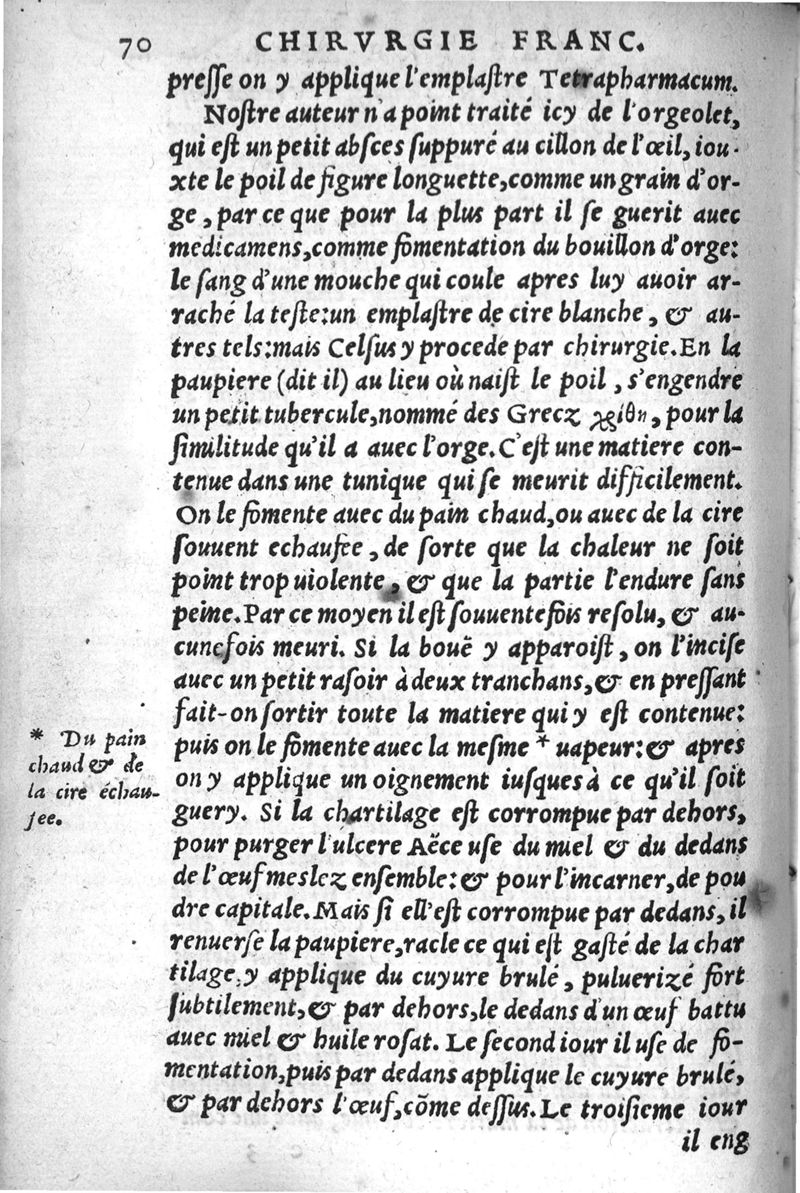 70 CHIRVRGIE FRANC.
presse on y applique l'emplastre Tetrapharmacum.
Nostre auteur n'a point traité icy de l'orgeolet,
qui est un petit absces suppuré au cillon de l'œil, iou-
xte le poil de figure longuette, comme un grain d'or-
ge, par ce que pour la plus part il se guerit auec
medicamens, comme fomentation du bouillon d'orge:
le sang d'une mouche qui coule apres luy auoir ar-
raché la teste: un emplastre de cire blanche, & au-
tres tels: mais Celsus y procede par chirurgie. En la
paupiere (dit il) au lieu où naist le poil, s'engendre
un petit tubercule, nommé des Grecz κριθη, pour la
similitude qu'il a auec l'orge. C'est une matiere con-
tenue dans une tunique qui se meurit difficilement.
On le fomente auec du pain chaud, ou auec de la cire
souuent echaufee, de sorte que la chaleur ne soit
point trop uiolente, & que la partie l'endure sans
peine. Par ce moyen il est souuentefois resolu, & au-
cunefois meuri. Si la bouë y apparoist, on l'incise
auec un petit rasoir à deux tranchans, & en pressant
fait-on sortir toute la matiere qui y est contenue:
puis on le fomente auec la mesme * uapeur: & apres
on y applique un oignement iusques à ce qu'il soit
guery. Si la chartilage est corrompue par dehors,
pour purger l'ulcere Aëce use du miel & du dedans
de l'œuf meslez ensemble: & pour l'incarner, de pou
dre capitale. Mais si ell'est corrompue par dedans, il
renuerse la paupiere, racle ce qui est gasté de la char
tilage, y applique du cuyure brulé, puluerizé fort
subtilement, & par dehors, le dedans d'un œuf battu
auec miel & huile rosat. Le second iour il use de fo-
mentation, puis par dedans applique le cuyure brulé,
& par dehors l'œuf, cõme dessus. Le troisieme iour
il eng
* Du pain
chaud & de
la cire échau-
fee.